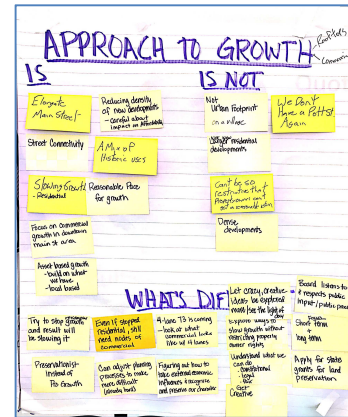 APPROACH TO GROWTH
IS
IS NOT
Elongate
Main Street -
Reducing density
of new developments
- careful about
impact on Affordability
Street Connectivity
A Mix of
Historic uses
Slowing Growth
- Residential
Reasonable Pace
for growth
Focus on commercial
growth in downtown
main st area
Asset based growth
- build on what
we have
- local based
Not
Urban Footprint
on a village
We Don't
Have a Pottst
Again
residential
developments
Can't be so
restrictive that
Dense
developments
WHAT'S DIF
Try to stop growth
and result will
be slowing it
Even if stopped
residential, still
need nodes of
commercial
4-lane T3 is coming
- look at what
commercial looks
like w/ 4 lanes
Let crazy, creative
ideas be explored
must see the light of day
explore ways to
slow growth without
restricting property
owners rights
Board listens to
& respects public
input / public
Short term
+
long term
Preservationist
instead of
Pro Growth
Can adjust planning
processes to make
more difficult
(already hard)
Figuring out how to
take external economic
influences & recognize
and preserve our character
Understand what we
can do
- constitutional
- legal
- fair
Get
Creative
Apply for state
grants for land
preservation